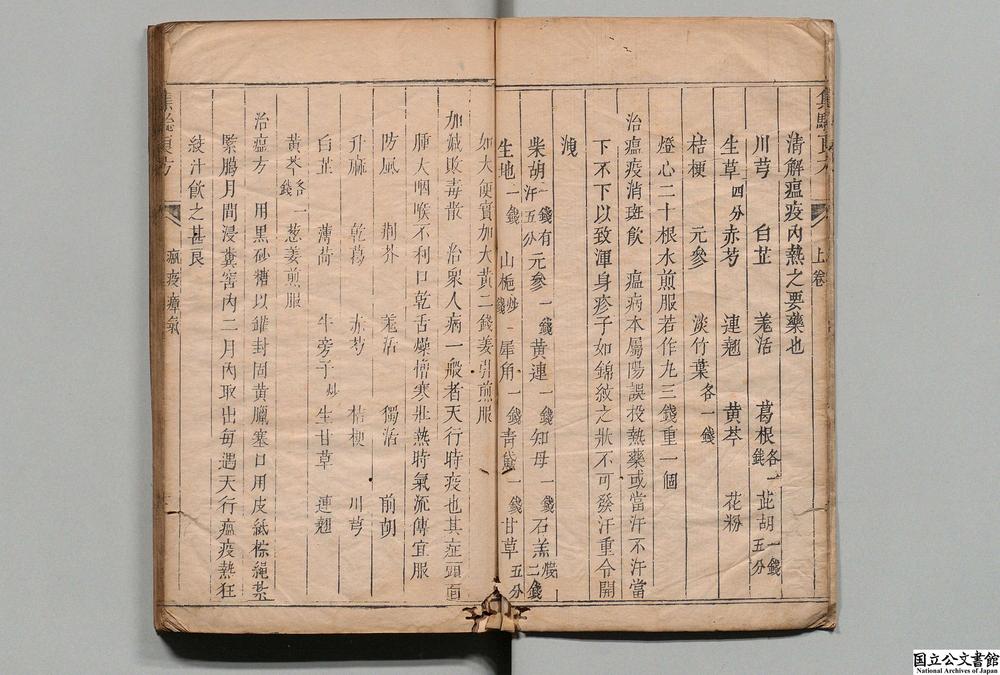 集驗良方 上卷
清解瘟疫內熱之要藥也
川芎 白芷 羗活 葛根各一錢 茈胡一錢五分
生草四分 赤芍 連翹 黄芩 花粉
桔梗 元參 淡竹葉各一錢
燈心二十根水煎服若作丸三錢重一個
治瘟疫消斑飲 瘟病本屬陽誤投熱藥或當汗不汗當
下不下以致渾身疹子如錦紋之狀不可發汗重令開
洩
柴胡一錢五分有汗 元參一錢 黄連一錢 知母一錢 石羔煅二錢
生地一錢 山梔炒一錢 犀角一錢 青黛一錢 甘草五分
如大便實加大黄二錢姜引煎服
加減敗毒散 治衆人病一般者天行時疫也其症頭面
腫大咽喉不利口乾舌燥憎寒壯熱時氣流傳宜服
防風 荆芥 羗活 獨活 前胡
升麻 乾葛 赤芍 桔梗 川芎
白芷 薄荷 牛旁子炒 生甘草 連翹
黄芩各一錢 葱姜煎服
治瘟方 用黒砂糖以罐封固黄臘塞口用皮紙棕繩紮
緊臈月間浸糞窖內二月內取出每遇天行瘟疫熱狂
絞汁飲之甚良
集驗良方 瘟疫瘴氣
国立公文書館
National Archives of Japan